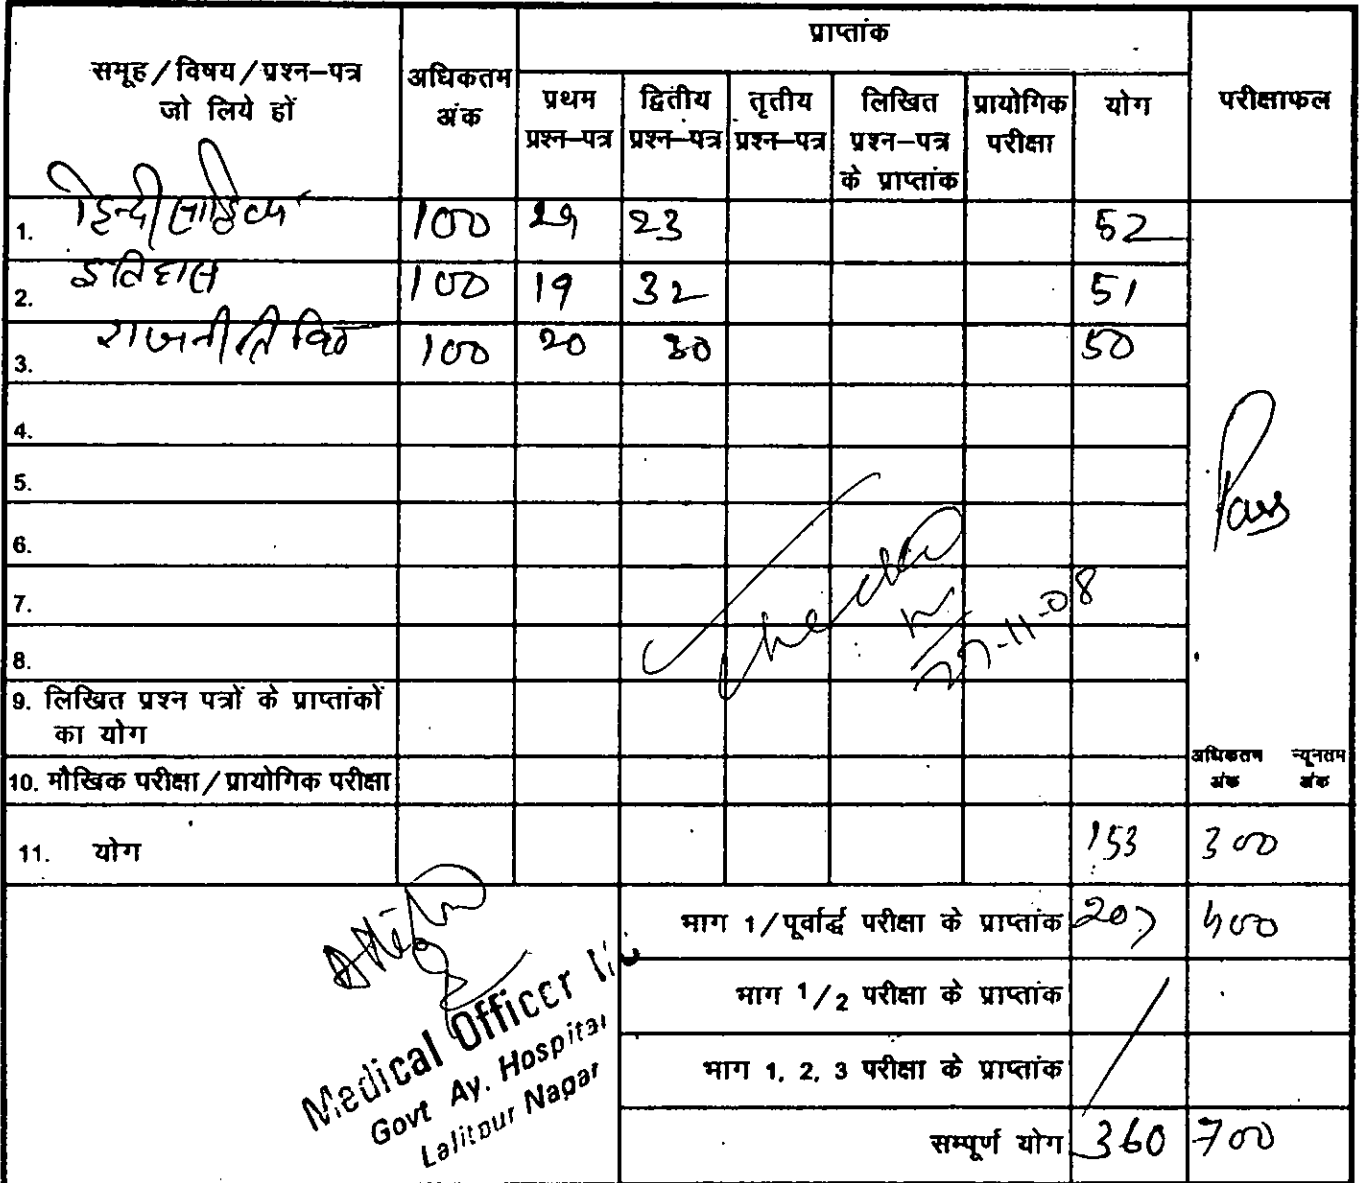 समूह/विषय/प्रश्न–पत्र जो लिये हों
अधिकतम अंक
प्राप्तांक
परीक्षाफल
प्रथम प्रश्न–पत्र
द्वितीय प्रश्न–पत्र
तृतीय प्रश्न–पत्र
लिखित प्रश्न–पत्र के प्राप्तांक
प्रायोगिक परीक्षा
योग
1. हिन्दी साहित्य 100 29 23 52
2. इतिहास 100 19 32 51
3. राजनीति वि० 100 20 30 50
4.
5.
6.
7.
8.
Pass
Checked
27-11-08
9. लिखित प्रश्न पत्रों के प्राप्तांकों
का योग
10. मौखिक परीक्षा/प्रायोगिक परीक्षा
अधिकतम अंक न्यूनतम अंक
11. योग 153 300
भाग 1/पूर्वार्द्ध परीक्षा के प्राप्तांक 207 400
भाग 1/2 परीक्षा के प्राप्तांक
भाग 1, 2, 3 परीक्षा के प्राप्तांक
सम्पूर्ण योग 360 700
Medical Officer
Govt Ay. Hospital
Lalitpur Nagar